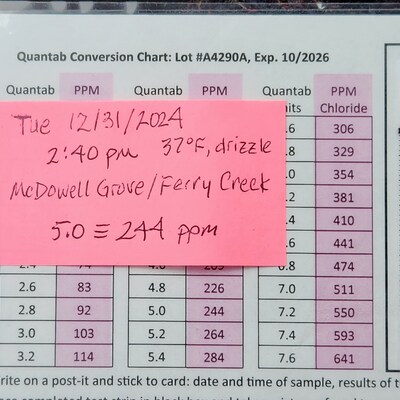 Quantab Conversion Chart: Lot #A4290A, Exp. 10/2026
Quantab PPM Quantab PPM Quantab PPM
Chloride
Tue 12/31/2024
2:40 pm 37°F, drizzle
McDowell Grove/Ferry Creek
5.0 ≡ 244 ppm
.6 306
.8 329
.0 354
.2 381
.4 410
.6 441
6.8 474
2.6 83 4.8 226 7.0 511
2.8 92 5.0 244 7.2 550
3.0 103 5.2 264 7.4 593
3.2 114 5.4 284 7.6 641
rite on a post-it and stick to card: date and time of sample, results of t